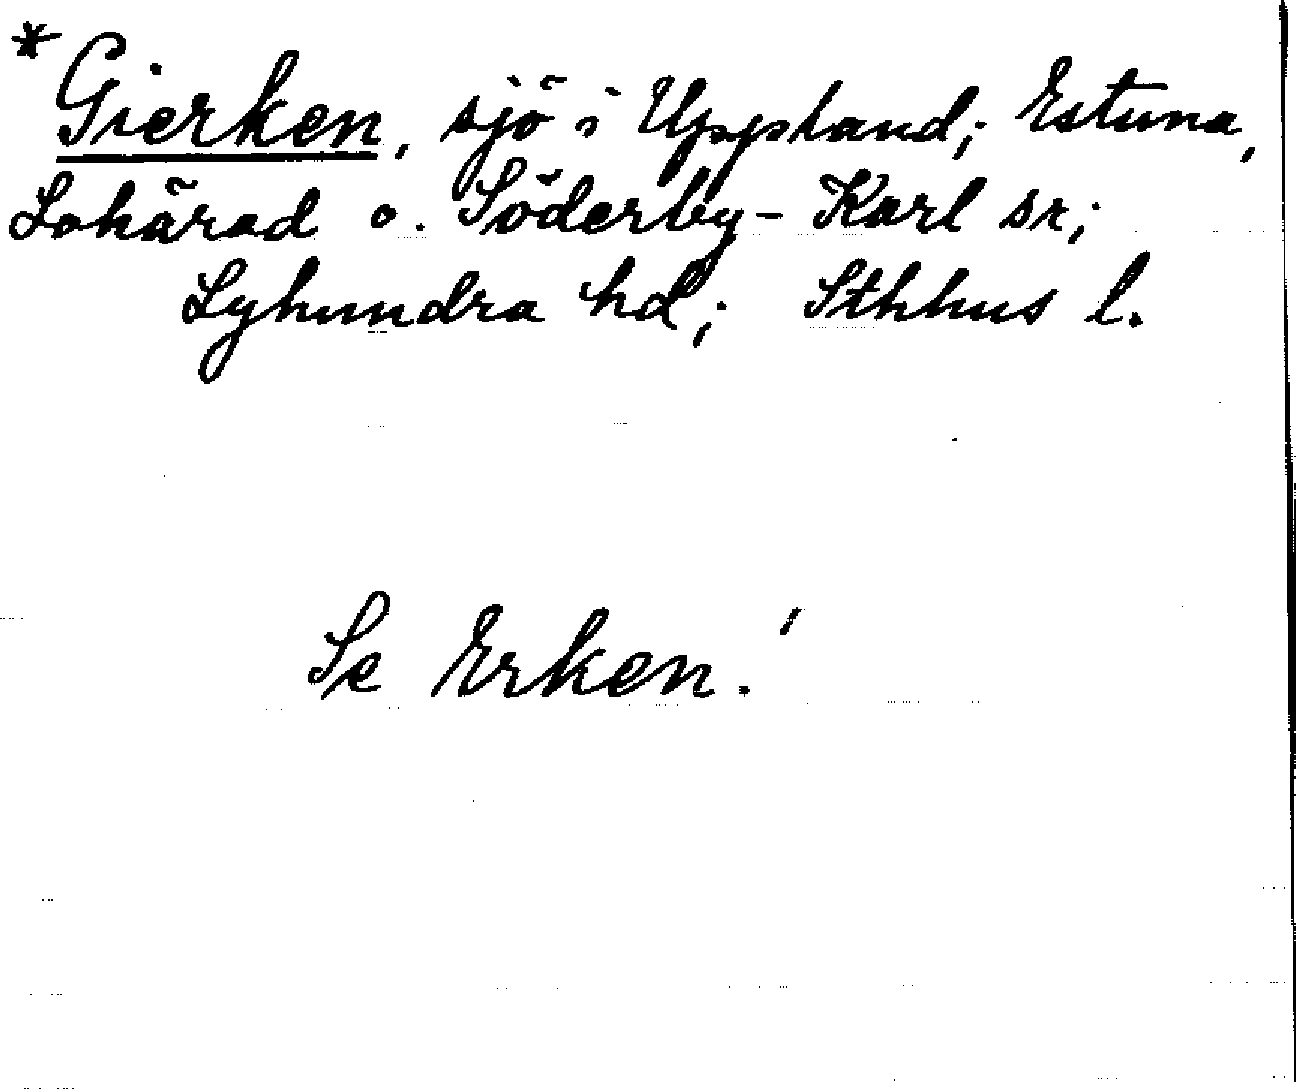 * Gierken, sjö i Uppland; Estuna,
Lohärad o. Söderby-Karl sr;
Lyhundra hd; Sthhus l.
Se Erken!